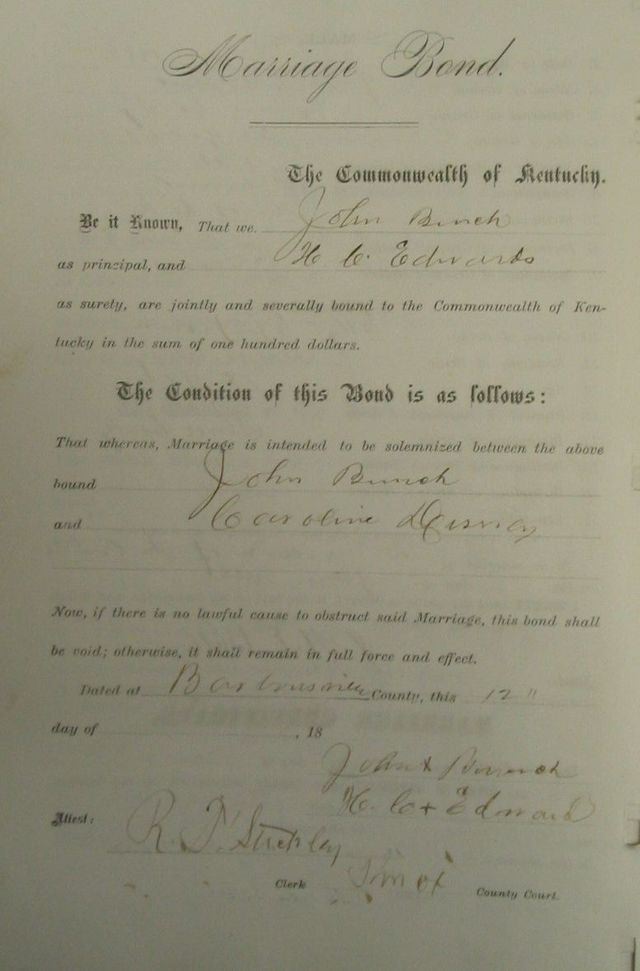 Marriage Bond.
The Commonwealth of Kentucky.
Be it Known, That we. John Bunch
as principal, and H. C. Edwards
as surety, are jointly and severally bound to the Commonwealth of Ken-
tucky in the sum of one hundred dollars.
The Condition of this Bond is as follows:
That whereas, Marriage is intended to be solemnized between the above
bound John Bunch
and Caroline Disney
Now, if there is no lawful cause to obstruct said Marriage, this bond shall
be void; otherwise, it shall remain in full force and effect.
Dated at Barbourville County, this 12"
day of , 18
John x Bunch
H. C. x Edwards
Attest: R. D. Stickley
Clerk County Court.